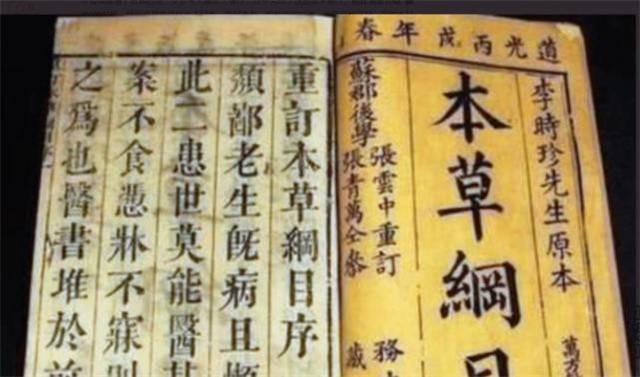 道光丙戌年春
李時珍先生原本
萬方
本草綱目
蘇郡後學
張雲中重訂
張青萬仝參
務
藏
重訂本草綱目序
鄙老生旣病且懶
此二患世莫能醫甚
案不食慿牀不寐則
之爲也醫書堆於前